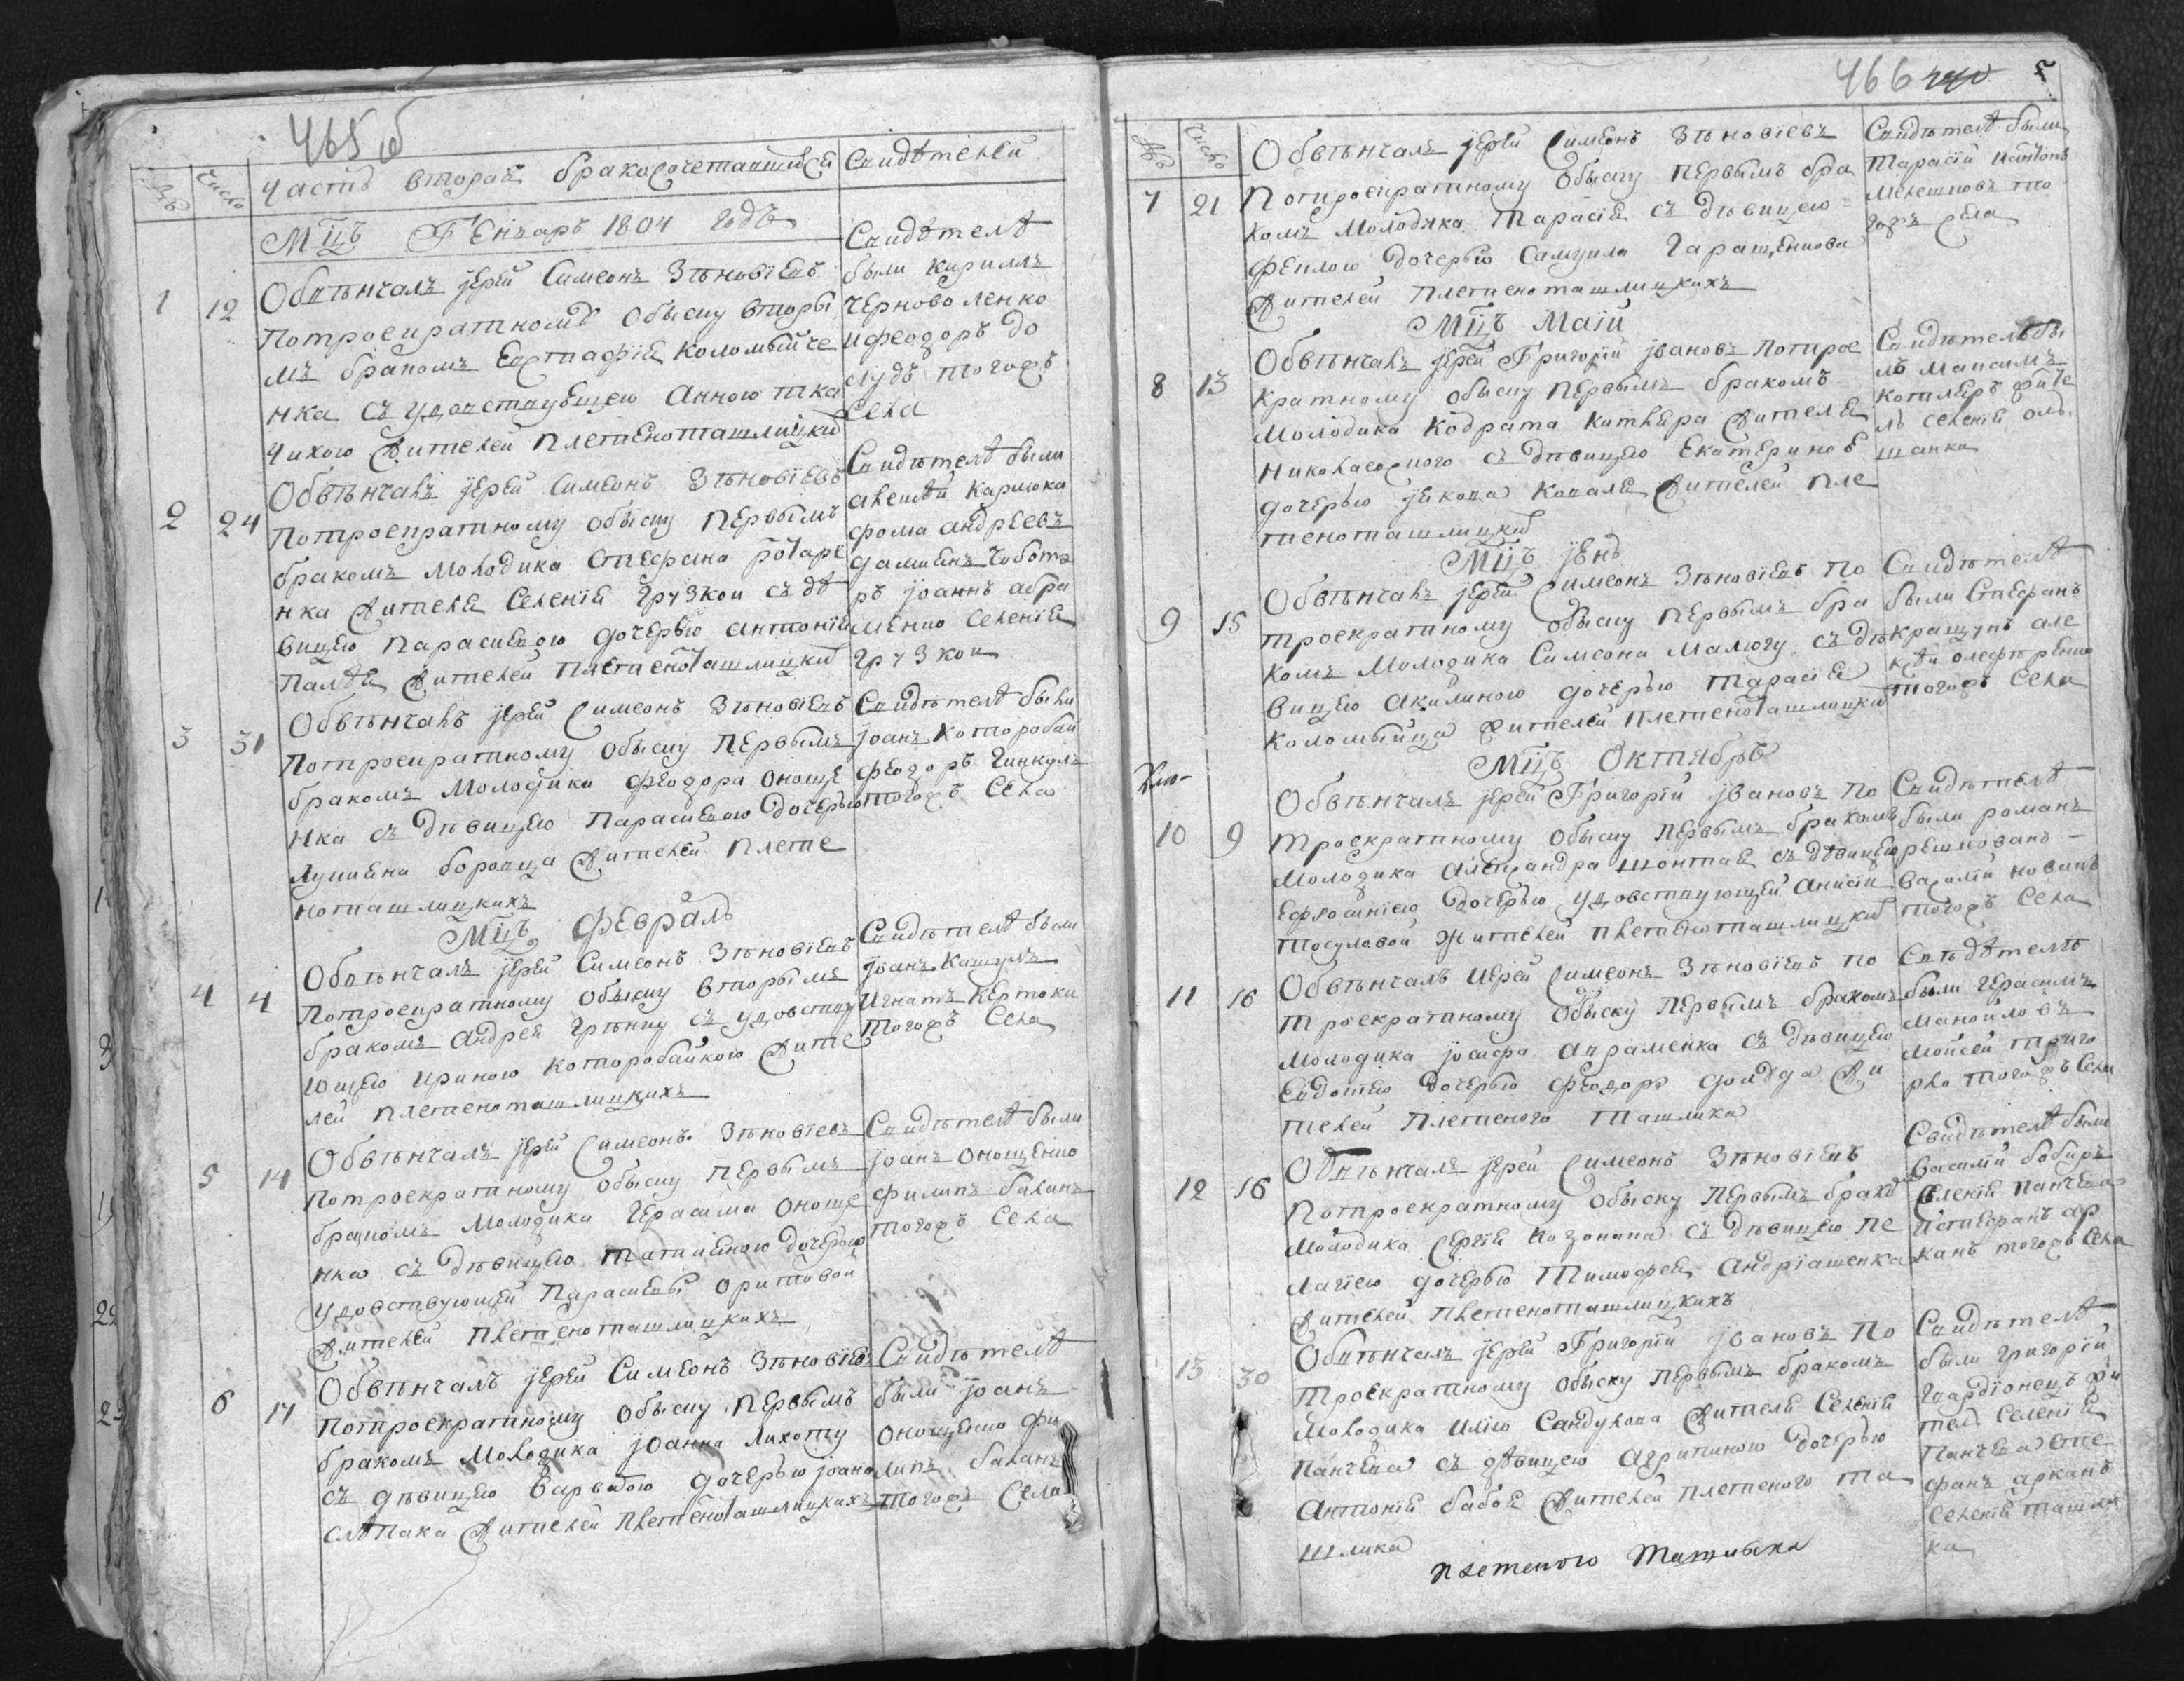 465 об
№ Число Часть вторая бракосочетавшихся Свидѣтелей
Мцъ Генъаръ 1804 годъ
1 12 Обвѣнчалъ јерей Симеонъ Зѣновїевъ
потроекратному обыску вторы
мъ бракомъ Евстафїя Коломыйче
нка съ удовствующею Анною тка
чихою жителей плетеноташлицки
Свидѣтелѣ
были Кириллъ
Черноволенко
и Феодоръ До
лудъ тогожъ
села
2 24 Обвѣнчалъ јерей Симеонъ Зѣновїевъ
потроекратному обыску первымъ
бракомъ молодика Стефана Ротаре
нка жителя селенїя Грузкои съ дѣ
вицею Параскевою дочерью Антонїя
жителей плетеноташлицки
Свидѣтелѣ были
алексѣй Кармока
фома андреевъ
дамиянъ чобота
ръ јоаннъ абра
менко селенїя
грузкои
3 31 Обвѣнчалъ јерей Симеонъ Зѣновїевъ
потроекратному обыску первымъ
бракомъ молодика Феодора Оноще
нка съ дѣвицею Параскевою дочерью
Лукияна боровца жителей плете
ноташлицкихъ
Свидѣтелѣ были
јоанъ Которобай
феодоръ Гинкулъ
тогожъ села
Мцъ Февраль
4 4 Обвѣнчалъ јерей Симеонъ Зѣновїевъ
потроекратному обыску вторымъ
бракомъ Андрея Грѣнку съ удовству
ющею Ириною Которобайкою жите
лей плетеноташлицкихъ
Свидѣтелѣ были
јоанъ Кашулъ
Игнатъ Кертоки
тогожъ села
5 14 Обвѣнчалъ јерей Симеонъ Зѣновїевъ
потроекратному обыску первымъ
бракомъ молодика Герасима Онеще
нка съ дѣвицею Татиеною дочерью
удовствующей Параскевы Оритовой
жителей плетеноташлицкихъ
Свидѣтелѣ были
јоанъ Онощенко
филипъ баланъ
тогожъ села
6 17 Обвѣнчалъ јерей Симеонъ Зѣновїевъ
потроекратному обыску первымъ
бракомъ молодика јоанна Лихоту
съ дѣвицею Варварою дочерью јоана
слѣпака жителей плетеноташлицкихъ
Свидѣтелѣ
были јоанъ
Онощенко фи
липъ баланъ
тогожъ села
466
№ Число
7 21 Обвѣнчалъ јерей Симеонъ Зѣновїевъ
потроекратному обыску первымъ бра
комъ молодика Тарасїя съ дѣвицею
феклою дочерью Самуила Гаращенкова
жителей плетеноташлицкихъ
Свидѣтелѣ были
Тарасїй и антонъ
Мелешковъ то
гожъ села
Мцъ Маїй
8 13 Обвѣнчалъ јерей Григорїй јвановъ потрое
кратному обыску первымъ бракомъ
молодика Кодрата Китлера жителя
Николаевского съ дѣвицею Екатериною
дочерью јякова Коваля жителей пле
теноташлицки
Свидѣтель бы
лъ Максимъ
Котлеръ жите
лъ селенїя оль
шанки
Мцъ јюнь
9 15 Обвѣнчалъ јерей Симеонъ Зѣновїевъ по
троекратному обыску первымъ бра
комъ молодика Симеона Малюгу съ дѣ
вицею Акилиною дочерью Тарасїя
Коломыйца жителей плетеноташлицки
Свидѣтелѣ
были Стефанъ
Кращунъ але
ксѣй олефѣренко
тогожъ села
Мцъ Октябрь
10 9 Обвѣнчалъ јерей Григорїй јвановъ по
троекратному обыску первымъ бракомъ
молодика Александра Шонтая съ дѣвицею
Ефросинїею дочерью удовствующей Анисїи
Тосуловой жителей плетеноташлицки
Свидѣтелѣ
были романъ
решкованъ
Василїй новакъ
тогожъ села
11 16 Обвѣнчалъ Иерей Симеонъ Зѣновїевъ по
троекратному обыску первымъ бракомъ
молодика јосифа Авраменка съ дѣвицею
Евдокїею дочерью Феодора Долуда жи
телей Плетеного Ташлика
Свѣдѣтелѣ
были Герасимъ
Манойловъ
Мойсей Григо
рко тогожъ села
12 16 Обвѣнчалъ јерей Симеонъ Зѣновїевъ
потроекратному обыску первымъ брако
молодика Сергїя Козонака съ дѣвицею Пе
лагїею дочерью Тимофея Андрїашенка
жителей плетеноташлицкихъ
Свидѣтелѣ были
Василїй бобыръ
селенїя панчева
и Стефанъ ар
канъ тогожъ села
13 30 Обвѣнчалъ јерей Григорїй јвановъ по
троекратному обыску первымъ бракомъ
молодика Илїю Сандулова жителя селенїя
панчева съ дѣвицею Агрипиною дочерью
Антонїя бабоя жителей плетеного Та
шлика
Свидѣтелѣ
были Григорїй
Гвардїонецъ жи
тель селенїя
Панчева Сте
фанъ арканъ
селенїя ташли
ка
плетеного Ташлыка